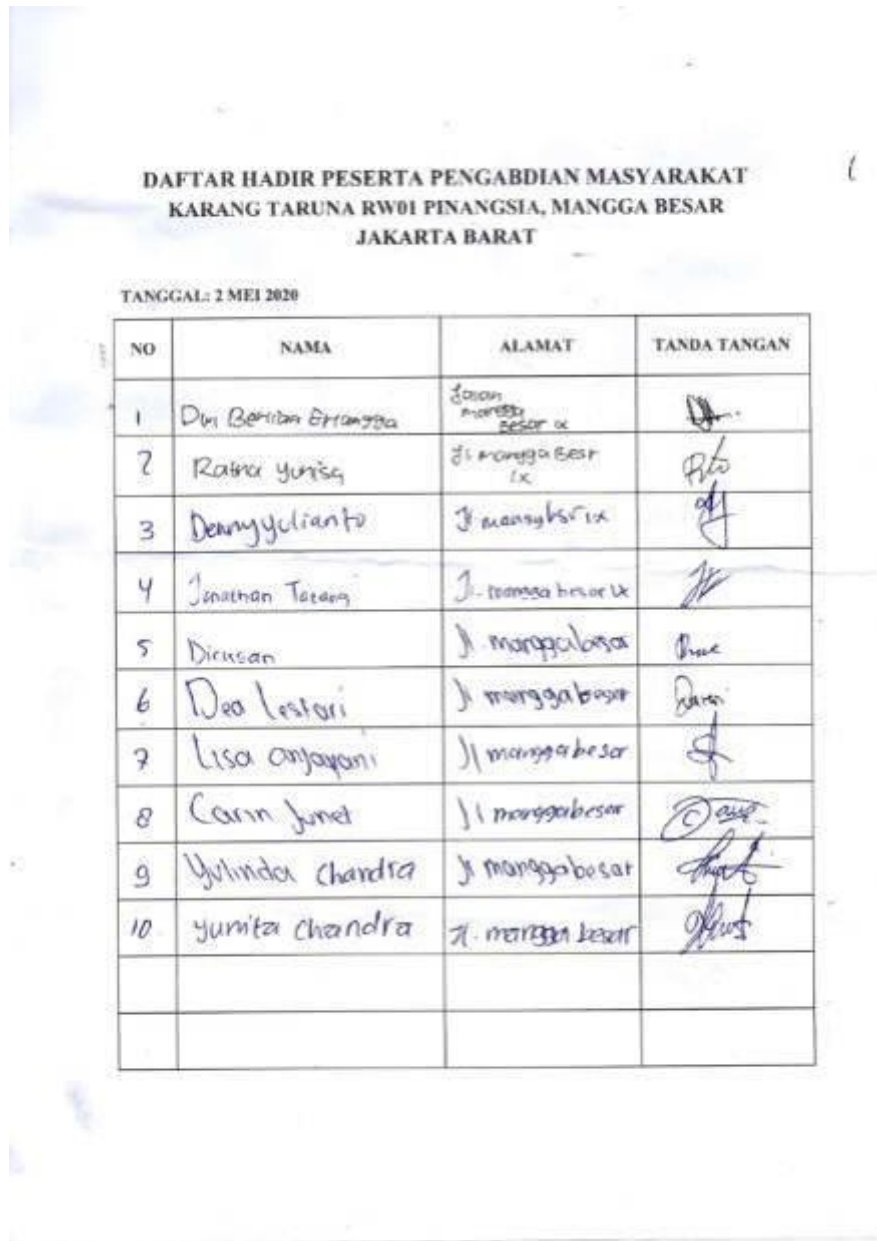 DAFTAR HADIR PESERTA PENGABDIAN MASYARAKAT
KARANG TARUNA RW01 PINANGSIA, MANGGA BESAR
JAKARTA BARAT
TANGGAL: 2 MEI 2020
NO NAMA ALAMAT TANDA TANGAN
1 Dwi Erlangga Mangga Besar IX
2 Ratna Yunisa Jl Mangga Besr IX
3 Denny yulianto Jl IX
4 Jonathan Jl. mangga besar IX
5 Dirusan Jl. manggabesar
6 Dea Lestari Jl manggabesar
7 Lisa anjayani Jl manggabesar
8 Carin Junet Jl manggabesar
9 Yulinda Chandra Jl manggabesar
10 yunita Chandra Jl. mangga besar